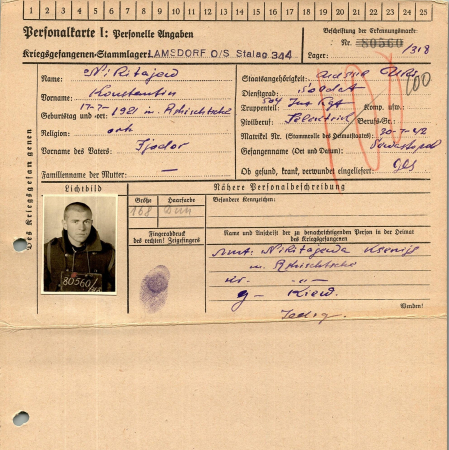 1 2 3 4 5 6 7 8 9 10 11 12 13 14 15 16 17 18 19 20 21 22 23 24 25
Personalkarte I: Personelle Angaben
Kriegsgefangenen-Stammlager: LAMSDORF O/S Stalag 344
Beschriftung der Erkennungsmarke:
Nr. 80560
Lager: /318
Des Kriegsgefangenen
Name: Nikitajew
Vorname: Konstantin
Geburtstag und -ort: 1921 in
Religion: orth
Vorname des Vaters: Fjodor
Familienname der Mutter: —
Staatsangehörigkeit:
Dienstgrad: Soldat
Truppenteil: 504 Komp. usw.:
Zivilberuf: Berufs-Gr.:
Matrikel Nr. (Stammrolle des Heimatstaates): 20-7-42
Gefangennahme (Ort und Datum): Sewastopol
Ob gesund, krank, verwundet eingeliefert: ges
100
Lichtbild
80560
Nähere Personalbeschreibung
Größe Haarfarbe
168
Besondere Kennzeichen:
Fingerabdruck
des rechten! Zeigefingers
Name und Anschrift der zu benachrichtigenden Person in der Heimat
des Kriegsgefangenen
Mut: Nikitajewa
g- Kiew.
Wenden!